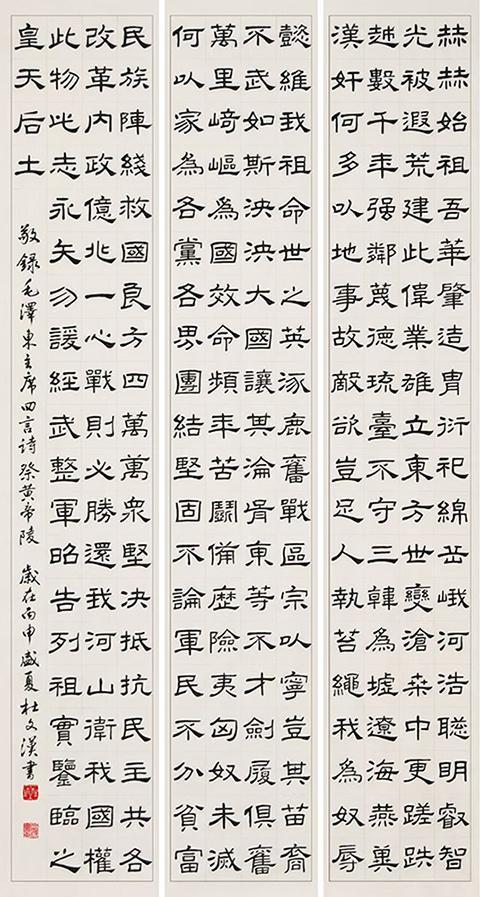 赫赫始祖吾華肇造冑衍祀綿岳峨河浩聰明叡智
光被遐荒建此偉業雄立東方世變滄桑中更蹉跌
越數千年强鄰蔑德琉臺不守三韓為墟遼海燕冀
漢奸何多以地事故敵欲豈足人執笞繩我為奴辱
懿維我祖命世之英涿鹿奮戰區宗以寧豈其苗裔
不武如斯泱泱大國讓其淪胥東等不才劍履俱奮
萬里崎嶇為國效命頻年苦鬭備歷險夷匈奴未滅
何以家為各黨各界團結堅固不論軍民不分貧富
民族陣綫救國良方四萬萬衆堅決抵抗民主共各
改革内政億兆一心戰則必勝還我河山衛我國權
此物此志永矢勿諼經武整軍昭告列祖實鑒臨之
皇天后土
敬錄毛澤東主席四言詩祭黃帝陵 歲在丙申盛夏杜文漢書